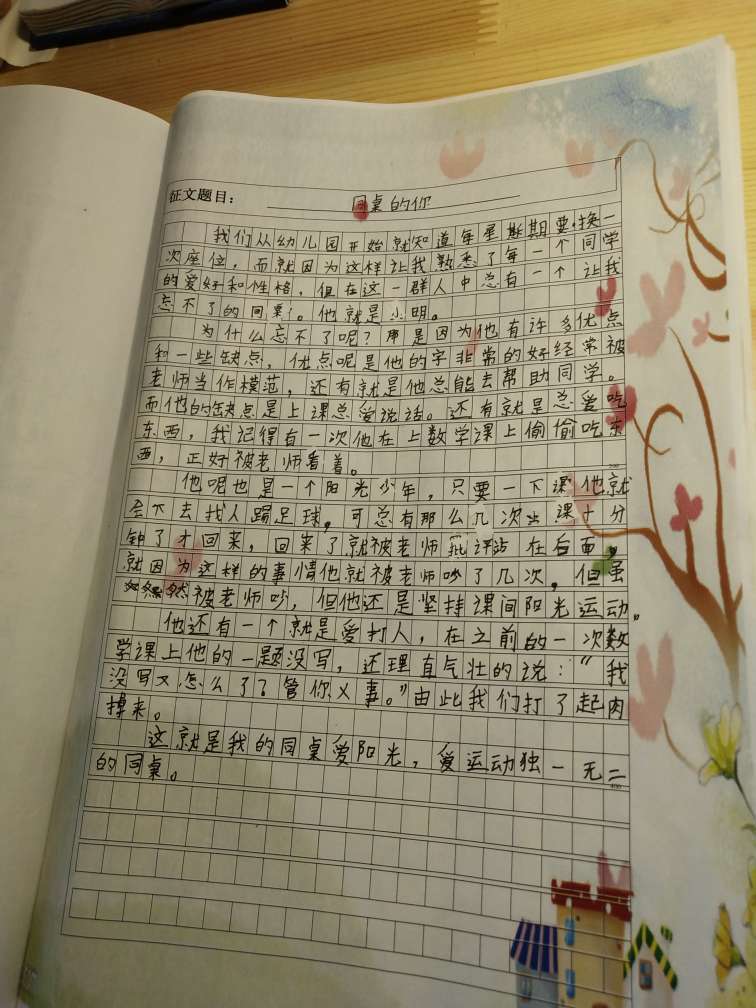 征文题目：同桌的你
我们从幼儿园开始就知道每星期要换一
次座位，而就因为这样让我熟悉了每一个同学
的爱好和性格，但在这一群人中总有一个让我
忘不了的同桌。他就是小明。
为什么忘不了呢？是因为他有许多优点
和一些缺点，优点呢是他的字非常的好经常被
老师当作模范，还有就是他总能去帮助同学。
而他的缺点是上课总爱说话。还有就是总爱吃
东西，我记得有一次他在上数学课上偷偷吃东
西，正好被老师看着。
他呢也是一个阳光少年，只要一下课他就
会下去找人踢足球，可总有那么几次出课十分
钟了才回来，回来了就被老师批评站在后面，
就因为这样的事情他就被老师吵了几次，但虽
然被老师吵，但他还是坚持课间阳光运动。
他还有一个就是爱打人，在之前的一次数
学课上他的一题没写，还理直气壮的说：“我
没写又怎么了？管你乂事。”由此我们打了起肉
搏来。
这就是我的同桌爱阳光，爱运动独一无二
的同桌。